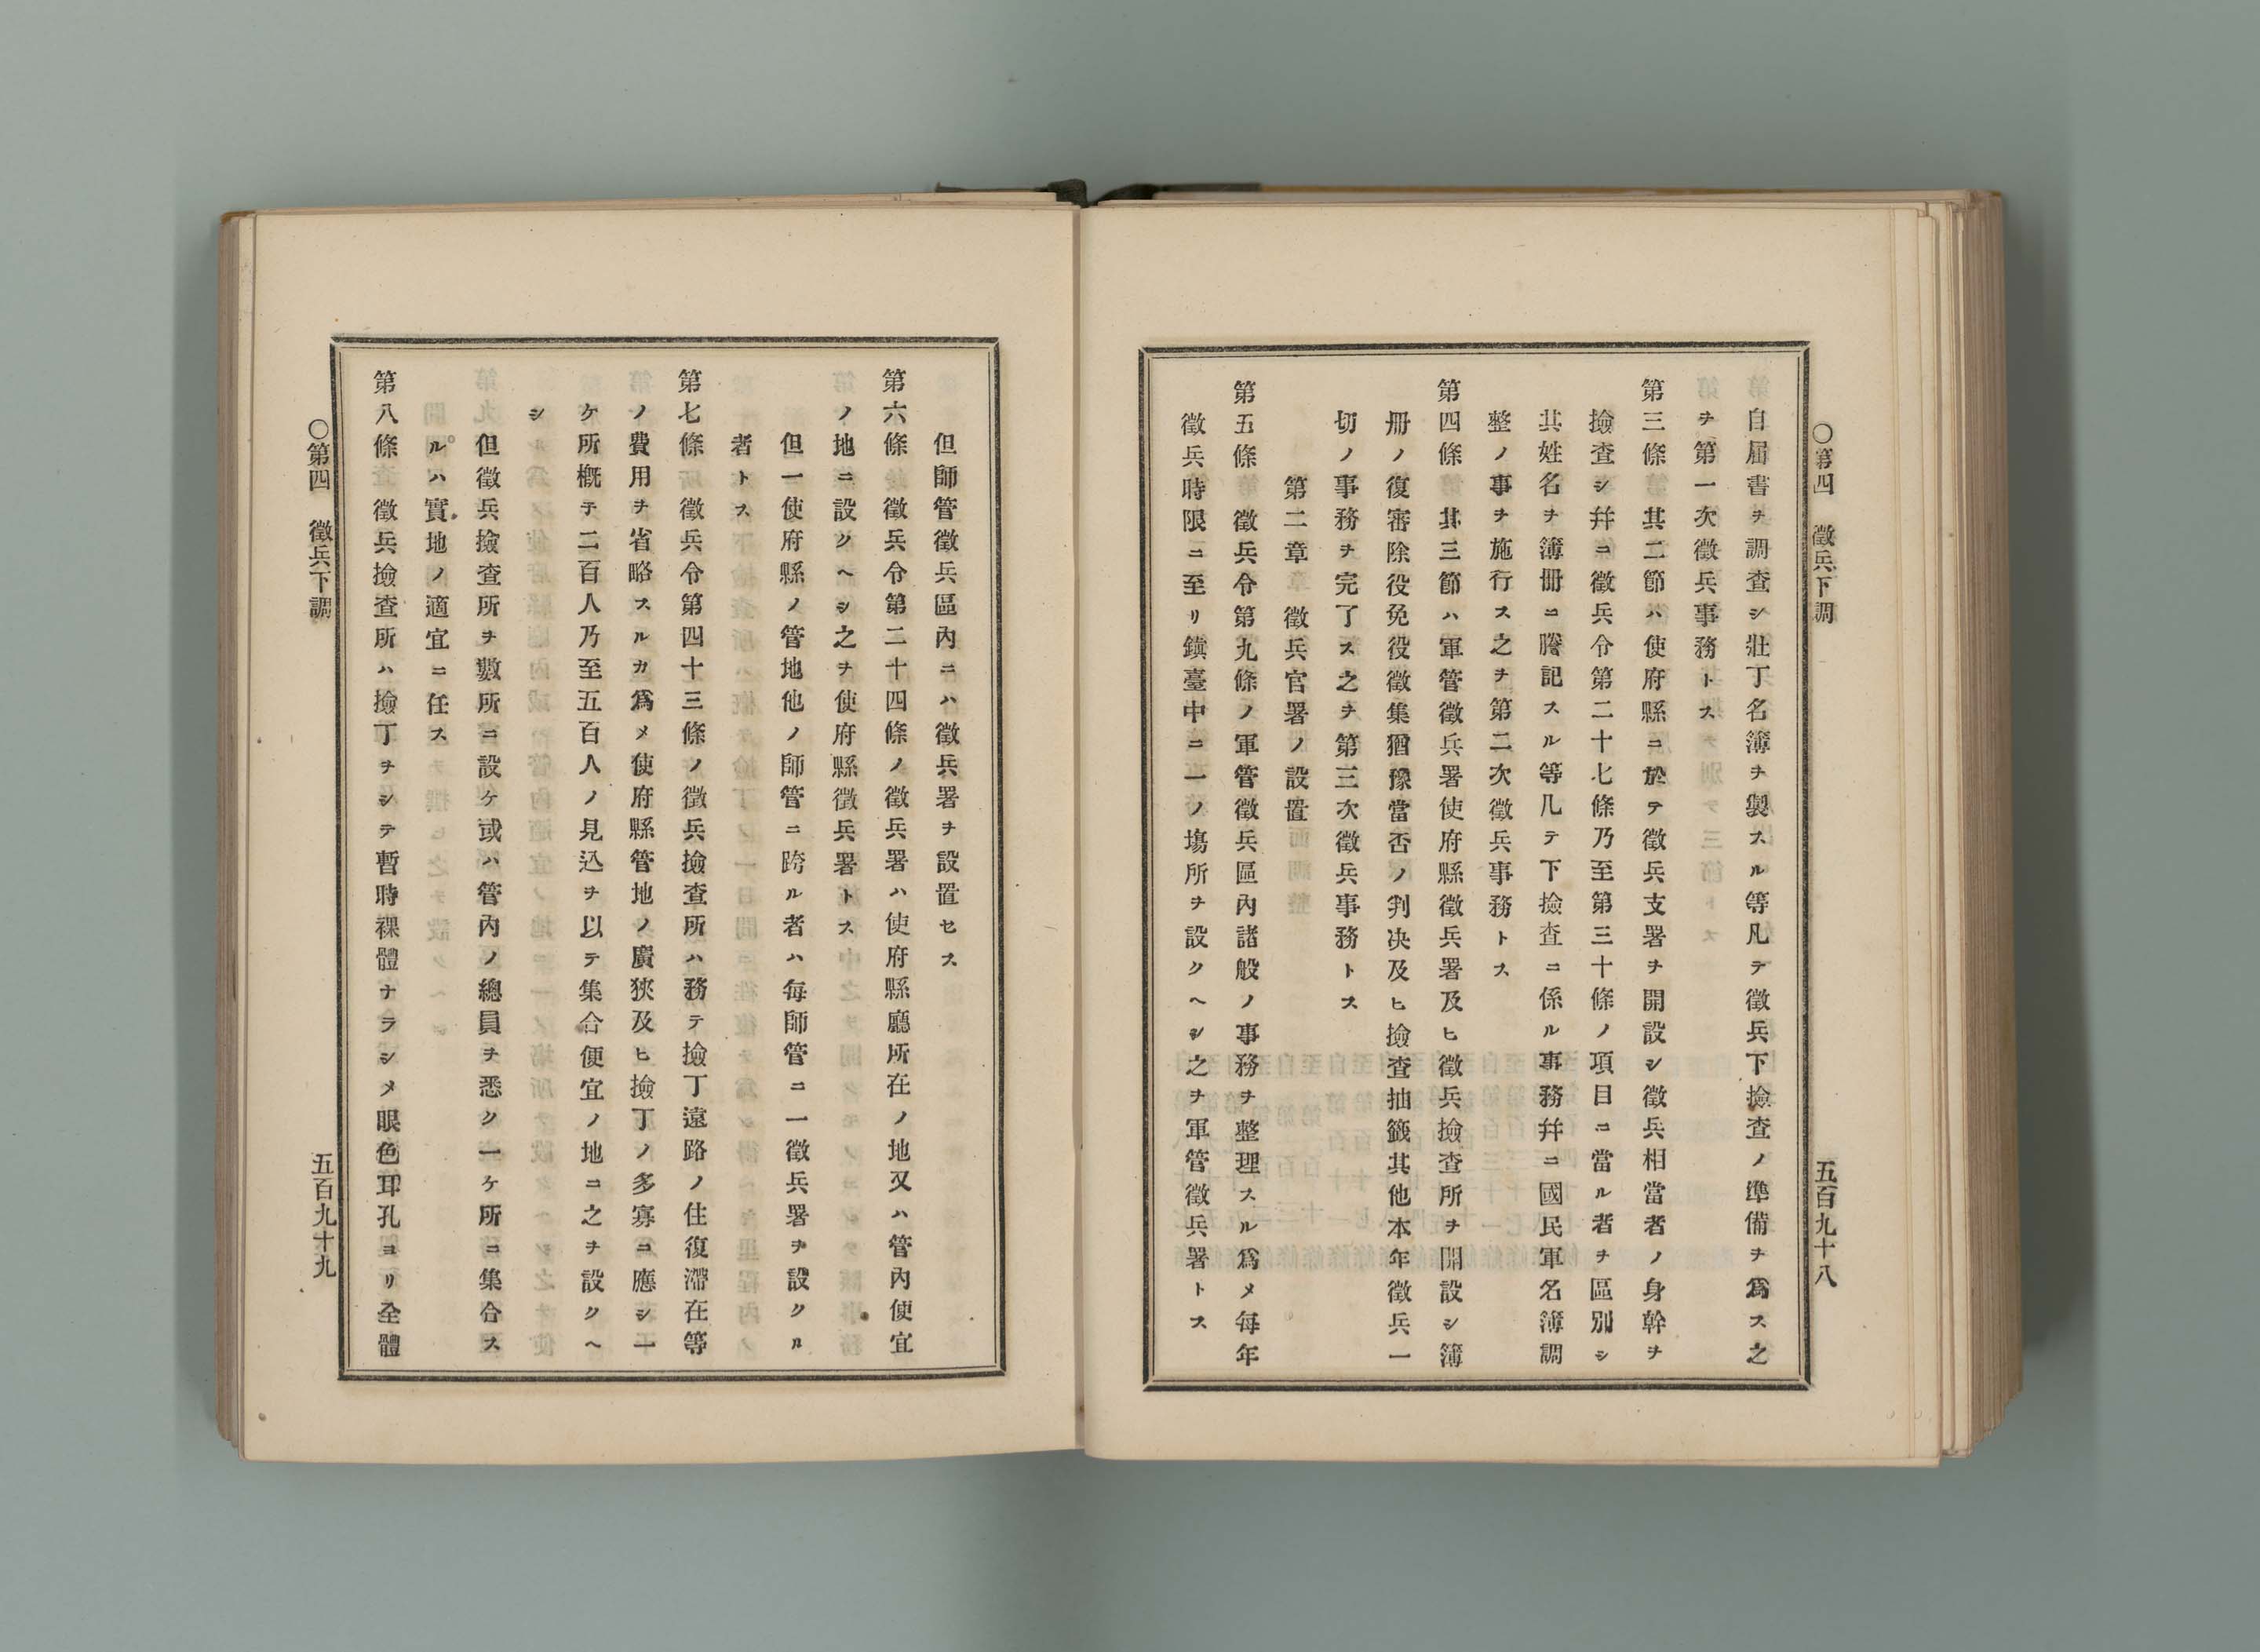 ○第四　徵兵下調
五百九十八
自屆書ヲ調查シ壯丁名簿ヲ製スル等凡テ徵兵下撿查ノ準備ヲ爲ス之
ヲ第一次徵兵事務トス
第三條　其二節ハ使府縣ニ於テ徵兵支署ヲ開設シ徵兵相當者ノ身幹ヲ
撿查シ幷ニ徵兵令第二十七條乃至第三十條ノ項目ニ當ル者ヲ區別シ
其姓名ヲ簿冊ニ謄記スル等凡テ下撿查ニ係ル事務幷ニ國民軍名簿調
整ノ事ヲ施行ス之ヲ第二次徵兵事務トス
第四條　其三節ハ軍管徵兵署使府縣徵兵署及ヒ徵兵撿查所ヲ開設シ簿
冊ノ復審除役免役徵集猶豫當否ノ判决及ヒ撿查抽籤其他本年徵兵一
切ノ事務ヲ完了ス之ヲ第三次徵兵事務トス
第二章　徵兵官署ノ設置
第五條　徵兵令第九條ノ軍管徵兵區內諸般ノ事務ヲ整理スル爲メ每年
徵兵時限ニ至リ鎭臺中ニ一ノ塲所ヲ設クヘシ之ヲ軍管徵兵署トス
但師管徵兵區內ニハ徵兵署ヲ設置セス
第六條　徵兵令第二十四條ノ徵兵署ハ使府縣廳所在ノ地又ハ管內便宜
ノ地ニ設クヘシ之ヲ使府縣徵兵署トス
但一使府縣ノ管地他ノ師管ニ跨ル者ハ每師管ニ一徵兵署ヲ設クル
者トス
第七條　徵兵令第四十三條ノ徵兵撿查所ハ務テ撿丁遠路ノ住復滯在等
ノ費用ヲ省略スルカ爲メ使府縣管地ノ廣狹及ヒ撿丁ノ多寡ニ應シ一
ケ所槪テ二百人乃至五百人ノ見込ヲ以テ集合便宜ノ地ニ之ヲ設クヘ
シ
但徵兵撿查所ヲ數所ニ設ケ或ハ管內ノ總員ヲ悉ク一ケ所ニ集合ス
ルハ實地ノ適宜ニ任ス
第八條　徵兵撿查所ハ撿丁ヲシテ暫時裸體ナラシメ眼色耳孔ヨリ全體
○第四　徵兵下調
五百九十九